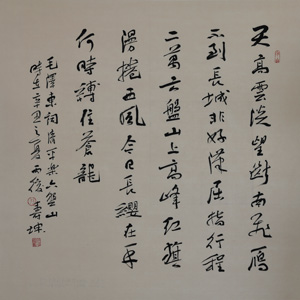 天高雲淡望斷南飛雁
不到長城非好漢屈指行程
二萬六盤山上高峰紅旗
漫捲西風今日長纓在手
何時縛住蒼龍
毛澤東詞清平樂六盤山
時在辛丑之夏雨後壽坤